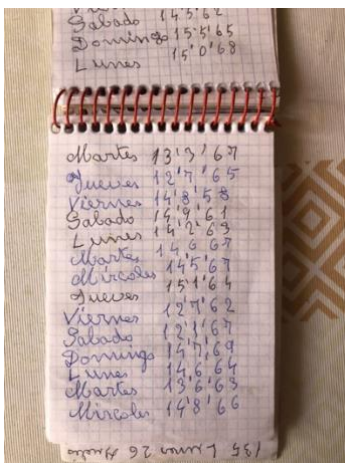 Sabado 14'5'62
Domingo 15'5'65
Lunes 15'0'68
Martes 13'3'67
Jueves 12'7'65
Viernes 14'8'58
Sabado 14'9'61
Lunes 14'2'63
Martes 14'6'67
Mircoles 14'5'67
Jueves 15'1'64
Viernes 12'7'62
Sabado 12'1'67
Domingo 14'7'69
Lunes 14'6'64
Martes 13'6'63
Mircoles 14'8'66
135 Lunes 26